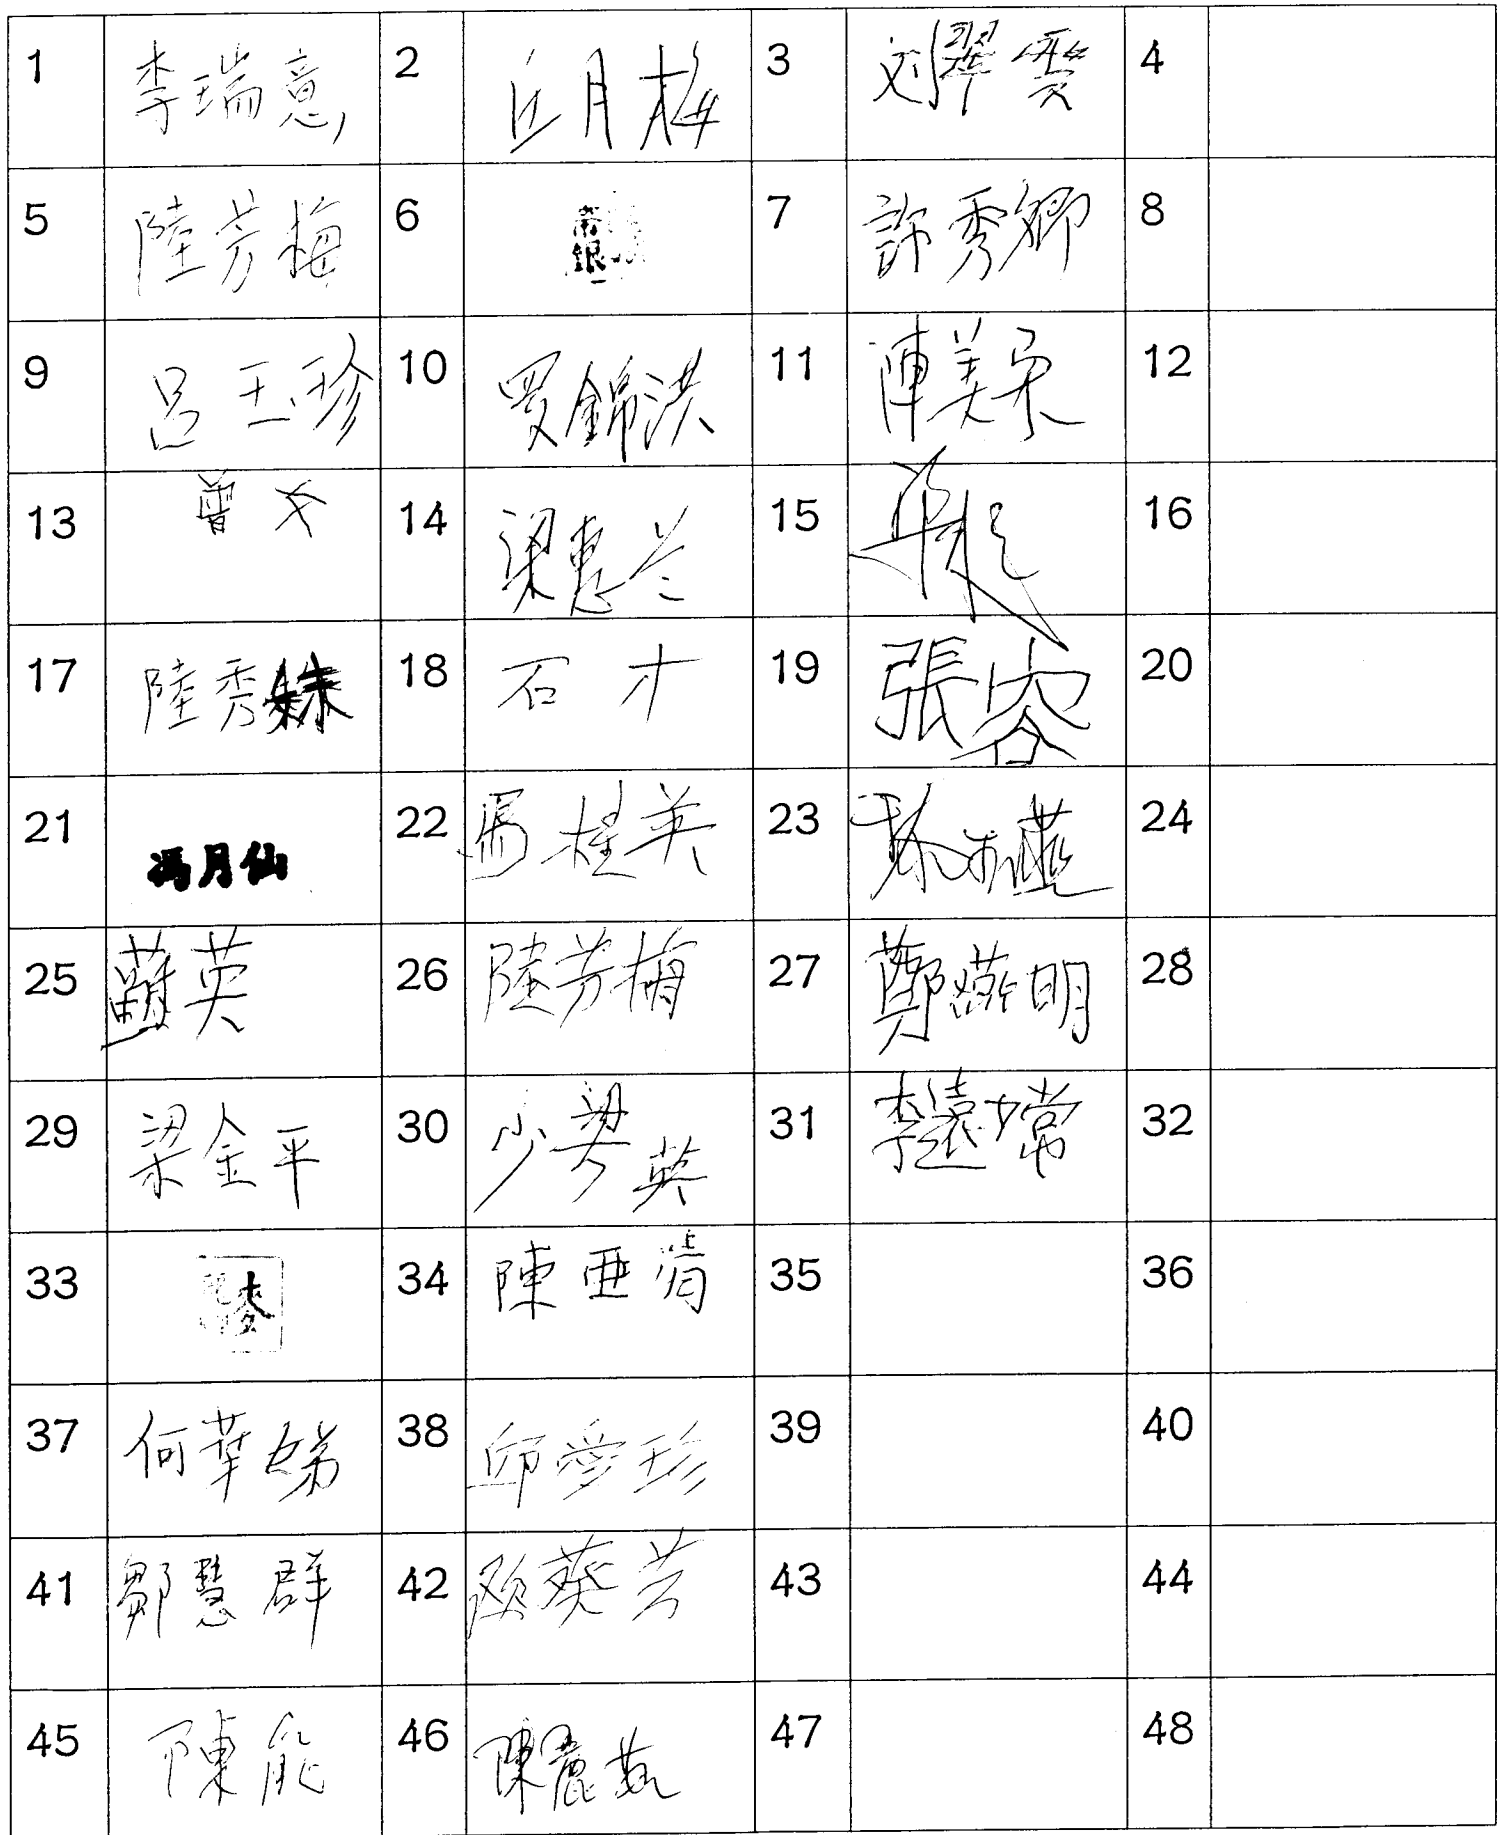 1 李瑞意 2 丘月梅 3 刘翠雲 4
5 陸芳梅 6 銀 7 許秀卿 8
9 呂玉珍 10 罗錦洪 11 陳美柔 12
13 曾 14 梁惠兰 15 16
17 陸秀妹 18 石才 19 張容 20
21 馮月仙 22 馮桂英 23 24
25 英 26 陸芳梅 27 鄭燕明 28
29 梁金平 30 少梁英 31 李遠嫦 32
33 麥 34 陳亜清 35 36
37 何華娣 38 邱愛珍 39 40
41 鄒慧群 42 欧葵芳 43 44
45 陳能 46 陳麗燕 47 48